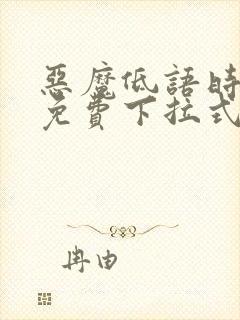 惡魔低語時
免費下拉式
冉由